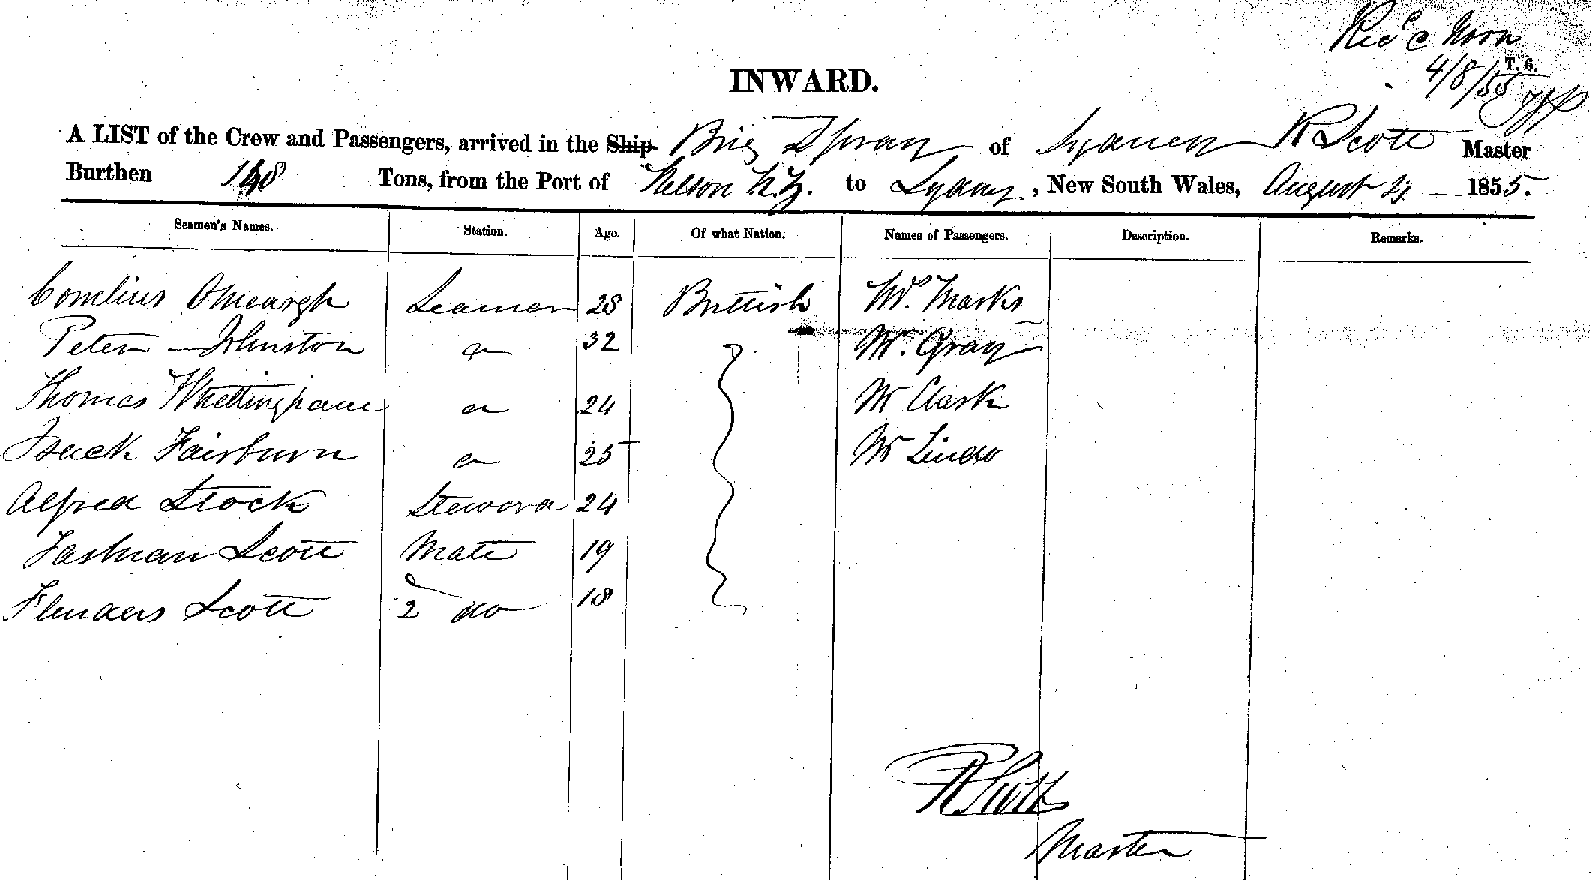 Recd @ Noon
T. S.
4/8/55
INWARD.
A LIST of the Crew and Passengers, arrived in the Ship Brig Spray of Sydney R Scott Master
Burthen 148 Tons, from the Port of Nelson N.Z. to Sydney, New South Wales, August 4 1855.
Seamen's Names. Station. Age. Of what Nation. Names of Passengers. Description. Remarks.
Cornelius Omeargh Seaman 28 British Mr. Marks
Peter Johnston do 32 Mr. Gray
Thomas Whettingham do 24 Mr Clark
Isack Fairburn do 25 Mr Lindo
Alfred Stock Steward 24
Scott Mate 19
Flenders Scott 2 do 18
R Scott
Master